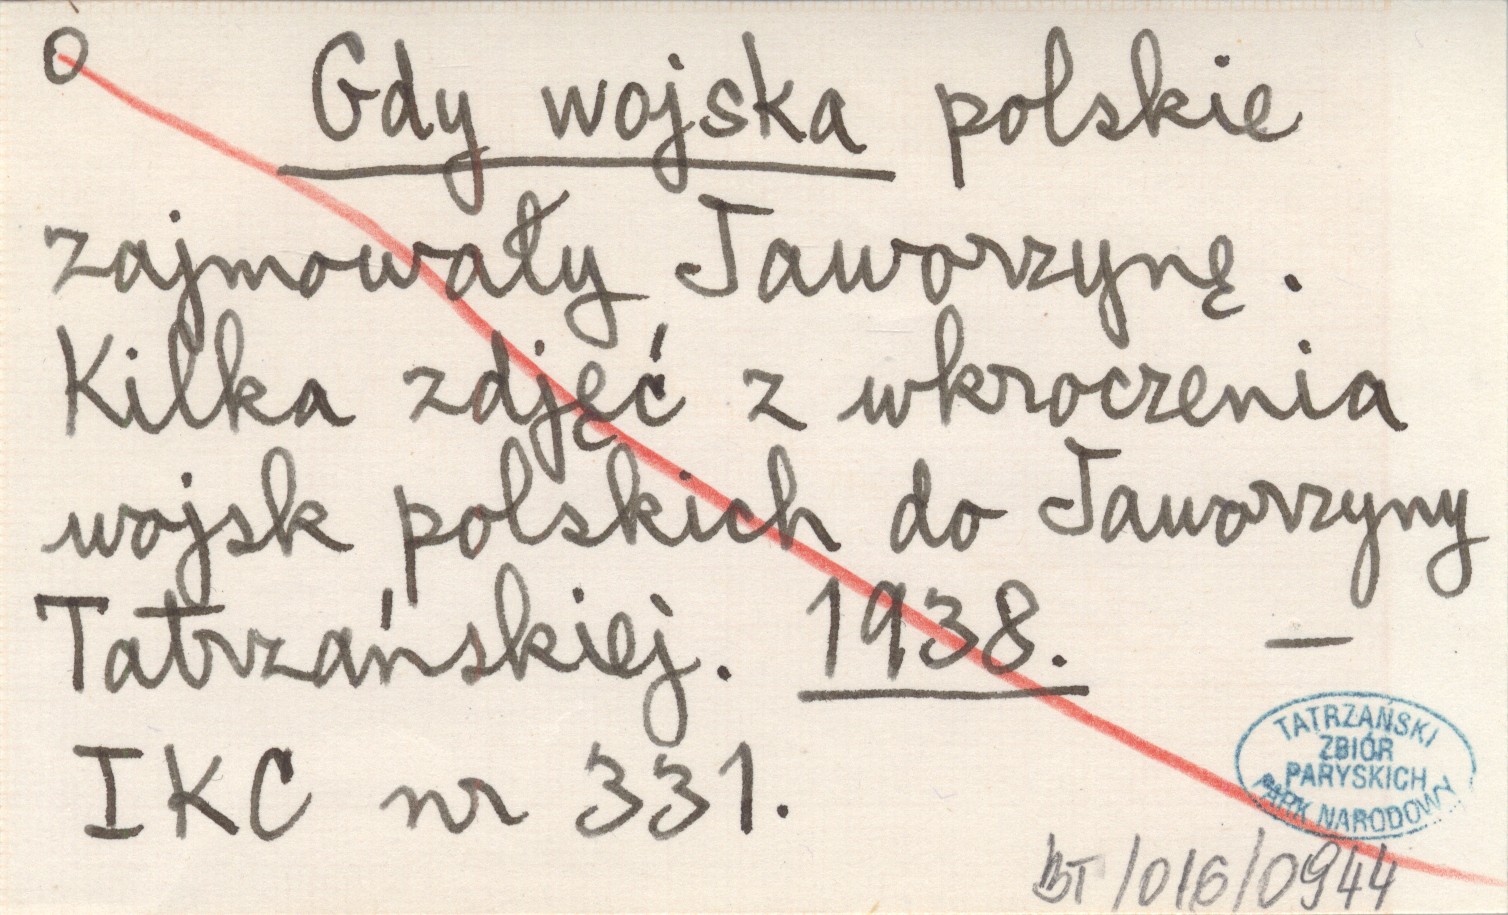 O
Gdy wojska polskie
zajmowały Jaworzynę.
Kilka zdjęć z wkroczenia
wojsk polskich do Jaworzyny
Tatrzańskiej. 1938. —
IKC nr 331.
TATRZAŃSKI
ZBIÓR
PARYSKICH
PARK NARODOWY
BT/016/0944